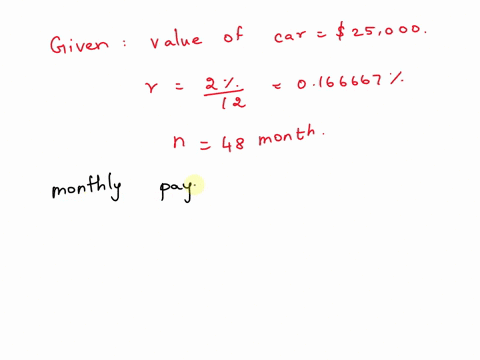 Given: value of car = $25,000.
r = 2% / 12 = 0.166667%
n = 48 month.
monthly pay.